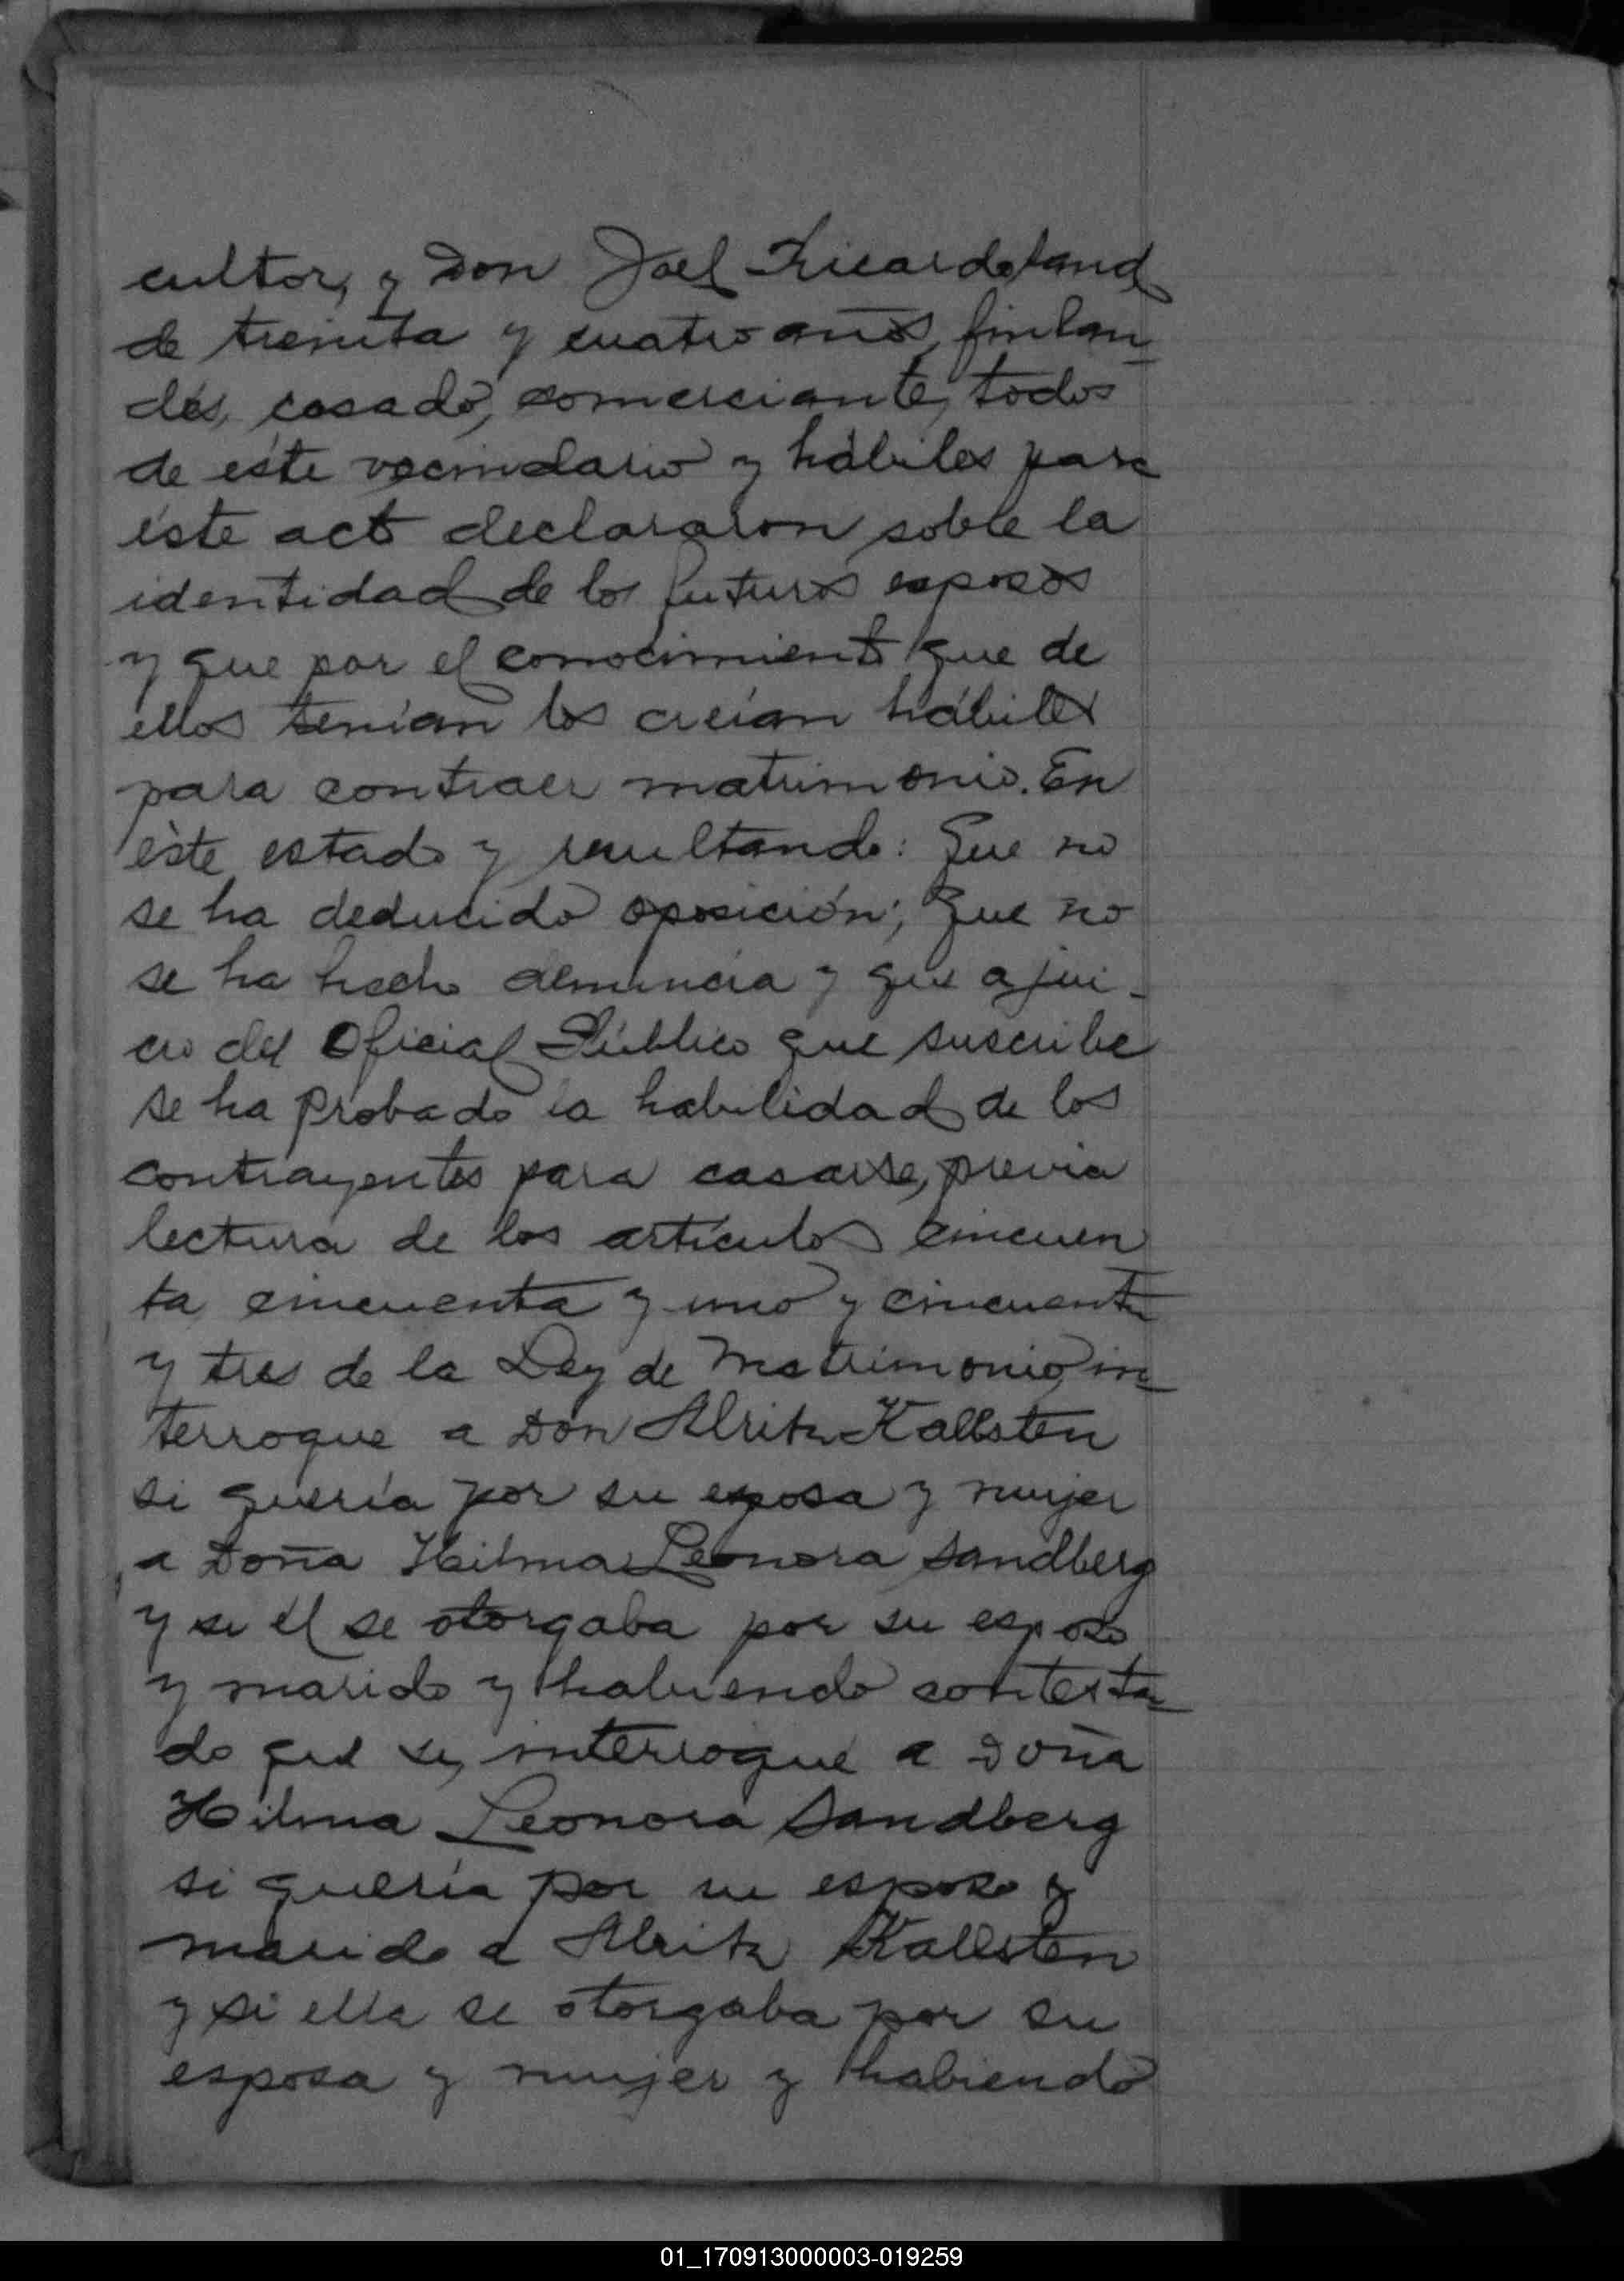 cultor, y Don Joel Ricardo Sand
de treinta y cuatro años, finlan-
dés, casado, comerciante, todos
de éste vecindario y hábiles para
éste acto declararon sobre la
identidad de los futuros esposos
y que por el conocimiento que de
ellos tenían los creían hábiles
para contraer matrimonio. En
éste estado y resultando: Que no
se ha deducido oposición; Que no
se ha hecho denuncia y que a jui-
cio del Oficial Público que suscribe
se ha probado la habilidad de los
contrayentes para casarse, previa
lectura de los artículos cincuen
ta cincuenta y uno y cincuenta
y tres de la Ley de Matrimonio, in-
terroque a Don Alrik Kallsten
si quería por su esposa y mujer
a Doña Hilma Leonora Sandberg
y si él se otorgaba por su esposo
y marido y habiendo contesta-
do que si, interrogué a Doña
Hilma Leonora Sandberg
si quería por su esposo y
marido a Alrik Kallsten
y si ella se otorgaba por su
esposa y mujer y habiendo
01_170913000003-019259